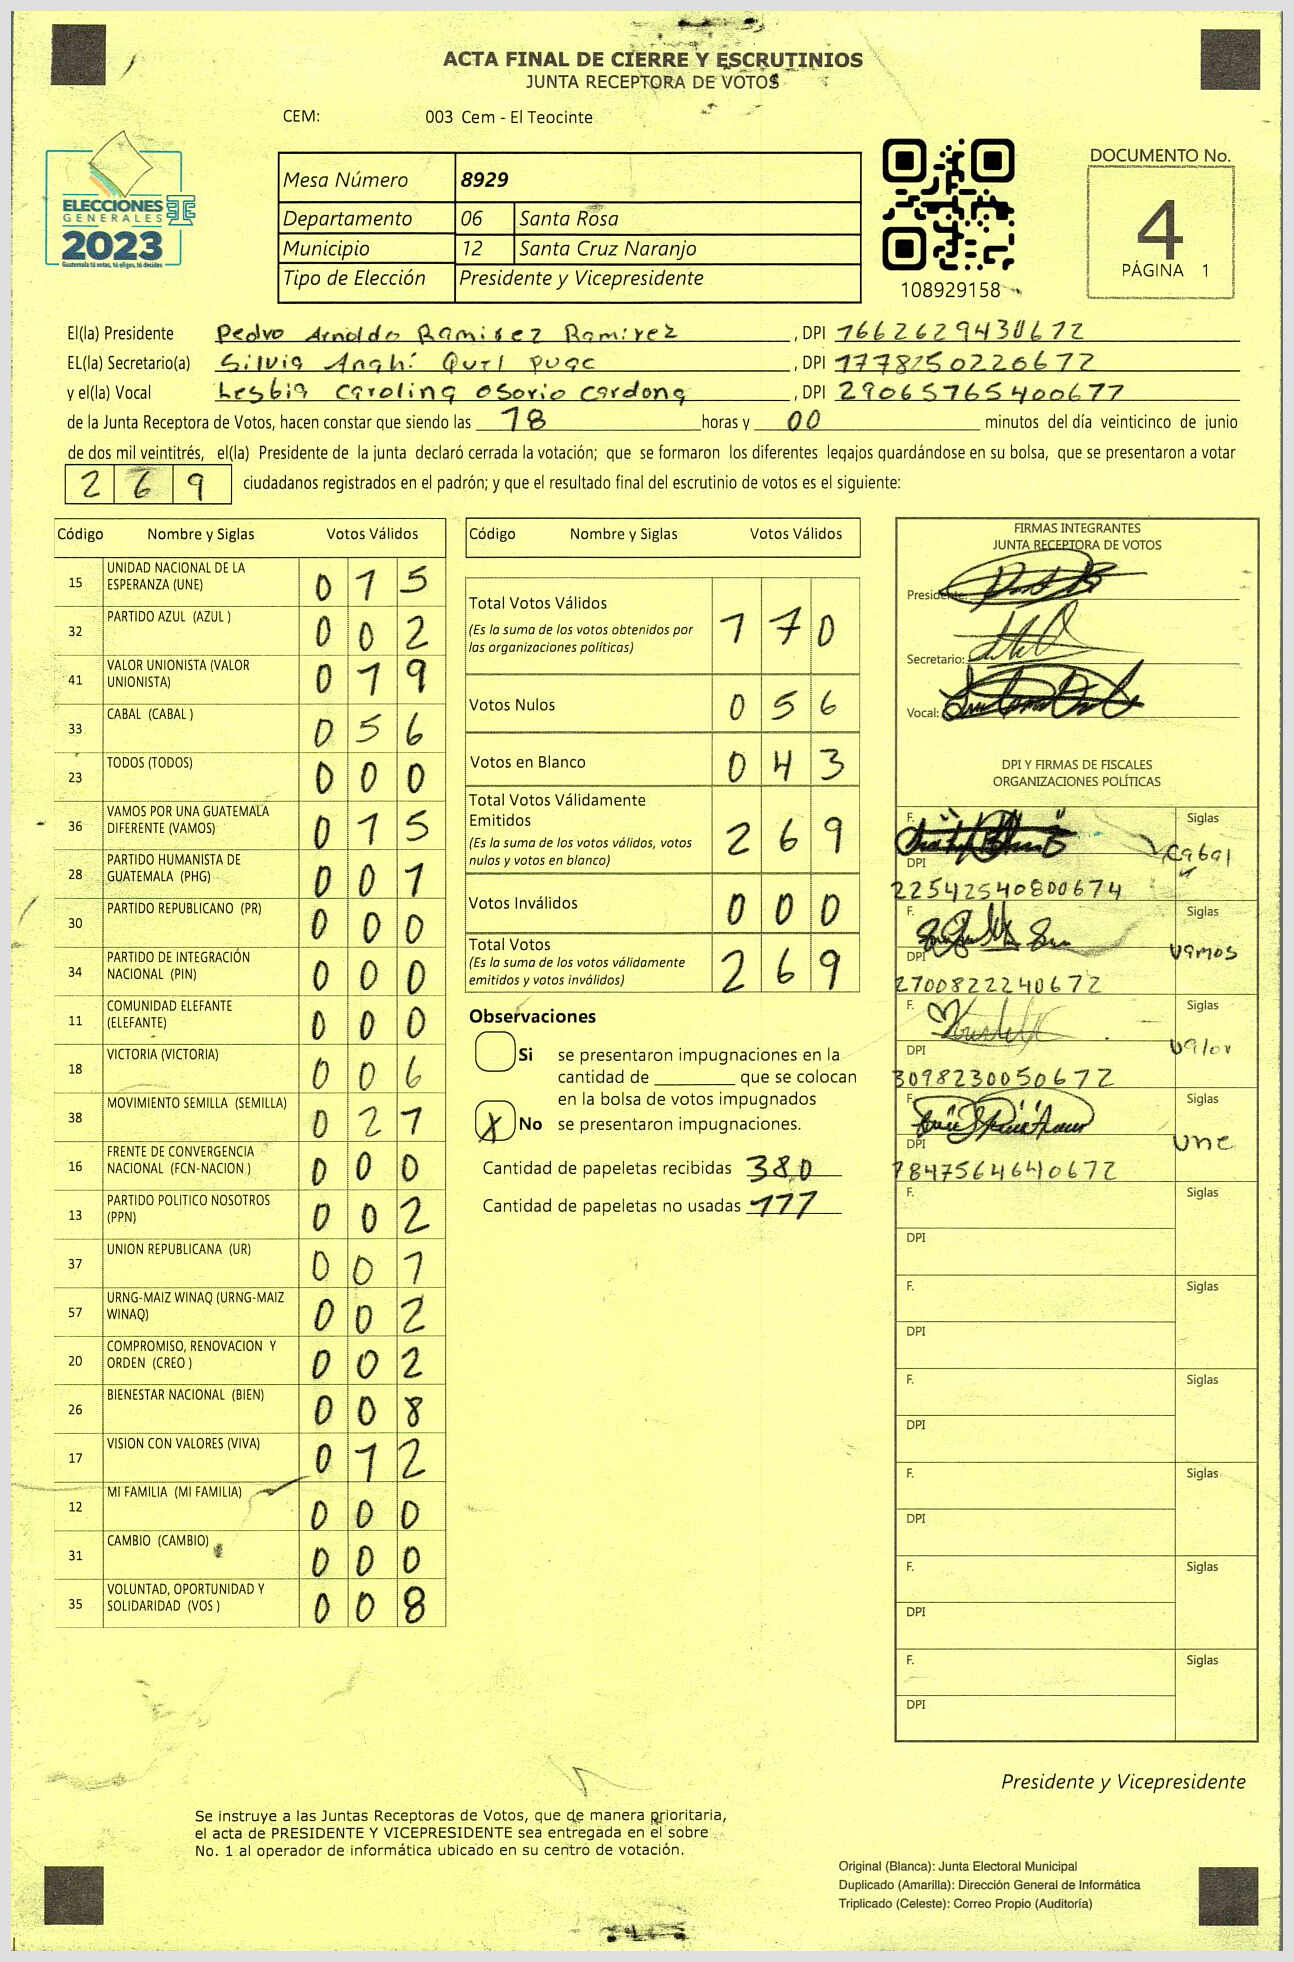 ACTA FINAL DE CIERRE Y ESCRUTINIOS
JUNTA RECEPTORA DE VOTOS
CEM: 003 Cem - El Teocinte
ELECCIONES
GENERALES
2023
Guatemala tú votas, tú eliges, tú decides
Mesa Número 8929
Departamento 06 Santa Rosa
Municipio 12 Santa Cruz Naranjo
Tipo de Elección Presidente y Vicepresidente
108929158
DOCUMENTO No.
4
PÁGINA 1
El(la) Presidente Pedro Arnoldo Ramirez Ramirez, DPI 1662629430672
EL(la) Secretario(a) Silvia Anghí, DPI 1778250220672
y el(la) Vocal Lesbia Carolina Osorio Cardona, DPI 29065765400677
de la Junta Receptora de Votos, hacen constar que siendo las 18 horas y 00 minutos del día veinticinco de junio
de dos mil veintitrés, el(la) Presidente de la junta declaró cerrada la votación; que se formaron los diferentes legajos quardándose en su bolsa, que se presentaron a votar
269 ciudadanos registrados en el padrón; y que el resultado final del escrutinio de votos es el siguiente:
Código Nombre y Siglas Votos Válidos
15 UNIDAD NACIONAL DE LA
ESPERANZA (UNE) 015
32 PARTIDO AZUL (AZUL ) 002
41 VALOR UNIONISTA (VALOR
UNIONISTA) 019
33 CABAL (CABAL ) 056
23 TODOS (TODOS) 000
36 VAMOS POR UNA GUATEMALA
DIFERENTE (VAMOS) 015
28 PARTIDO HUMANISTA DE
GUATEMALA (PHG) 001
30 PARTIDO REPUBLICANO (PR) 000
34 PARTIDO DE INTEGRACIÓN
NACIONAL (PIN) 000
11 COMUNIDAD ELEFANTE
(ELEFANTE) 000
18 VICTORIA (VICTORIA) 006
38 MOVIMIENTO SEMILLA (SEMILLA) 021
16 FRENTE DE CONVERGENCIA
NACIONAL (FCN-NACION ) 000
13 PARTIDO POLITICO NOSOTROS
(PPN) 002
37 UNION REPUBLICANA (UR) 001
57 URNG-MAIZ WINAQ (URNG-MAIZ
WINAQ) 002
20 COMPROMISO, RENOVACION Y
ORDEN (CREO ) 002
26 BIENESTAR NACIONAL (BIEN) 008
17 VISION CON VALORES (VIVA) 012
12 MI FAMILIA (MI FAMILIA) 000
31 CAMBIO (CAMBIO) 000
35 VOLUNTAD, OPORTUNIDAD Y
SOLIDARIDAD (VOS ) 008
Código Nombre y Siglas Votos Válidos
Total Votos Válidos 170
(Es la suma de los votos obtenidos por
las organizaciones politicas)
Votos Nulos 056
Votos en Blanco 043
Total Votos Válidamente
Emitidos 269
(Es la suma de los votos válidos, votos
nulos y votos en blanco)
Votos Inválidos 000
Total Votos 269
(Es la suma de los votos válidamente
emitidos y votos inválidos)
Observaciones
Si se presentaron impugnaciones en la
cantidad de ________ que se colocan
en la bolsa de votos impugnados
X No se presentaron impugnaciones.
Cantidad de papeletas recibidas 380
Cantidad de papeletas no usadas 111
FIRMAS INTEGRANTES
JUNTA RECEPTORA DE VOTOS
Presidente:
Secretario:
Vocal:
DPI Y FIRMAS DE FISCALES
ORGANIZACIONES POLÍTICAS
F. Siglas
Cabal
DPI
22542540800674
F. Siglas
Vamos
DPI
2700822240672
F. Siglas
Valor
DPI
3098230050672
F. Siglas
une
DPI
1847564640672
F. Siglas
DPI
F. Siglas
DPI
F. Siglas
DPI
F. Siglas
DPI
F. Siglas
DPI
F. Siglas
DPI
Presidente y Vicepresidente
Se instruye a las Juntas Receptoras de Votos, que de manera prioritaria,
el acta de PRESIDENTE Y VICEPRESIDENTE sea entregada en el sobre
No. 1 al operador de informática ubicado en su centro de votación.
Original (Blanca): Junta Electoral Municipal
Duplicado (Amarilla): Dirección General de Informática
Triplicado (Celeste): Correo Propio (Auditoría)